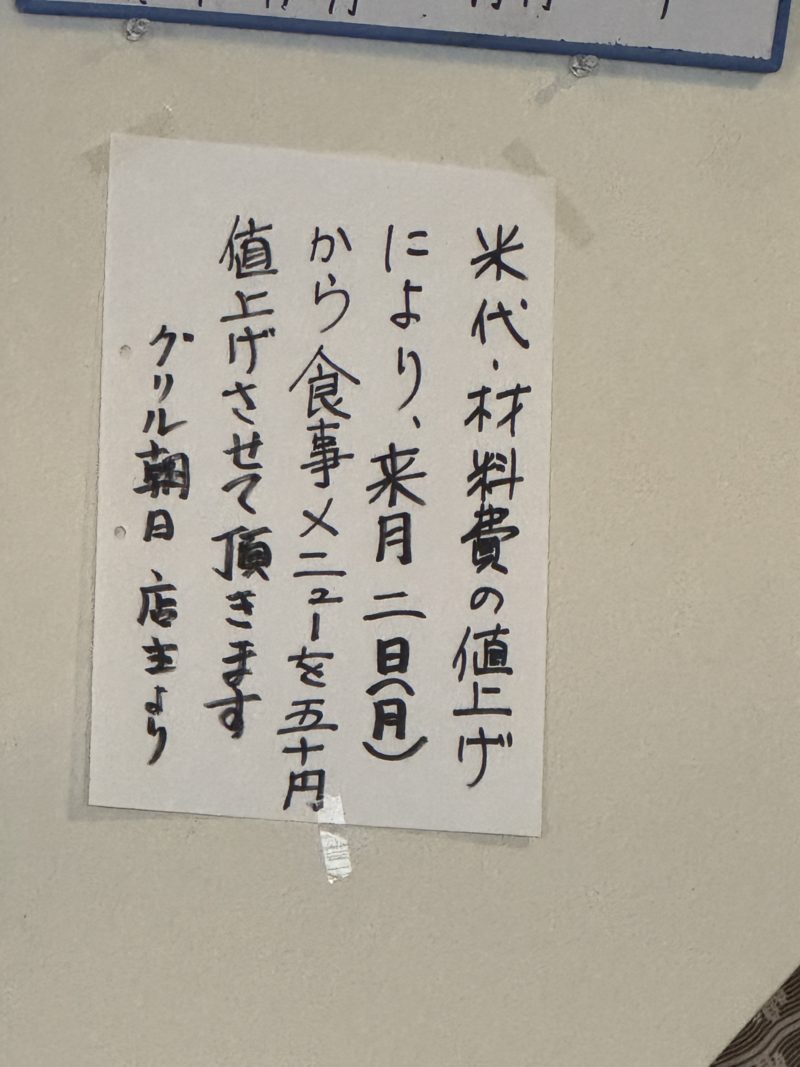 米代・材料費の値上げ
により、来月二日(月)
から食事メニューを五十円
値上げさせて頂きます
グリル朝日 店主より